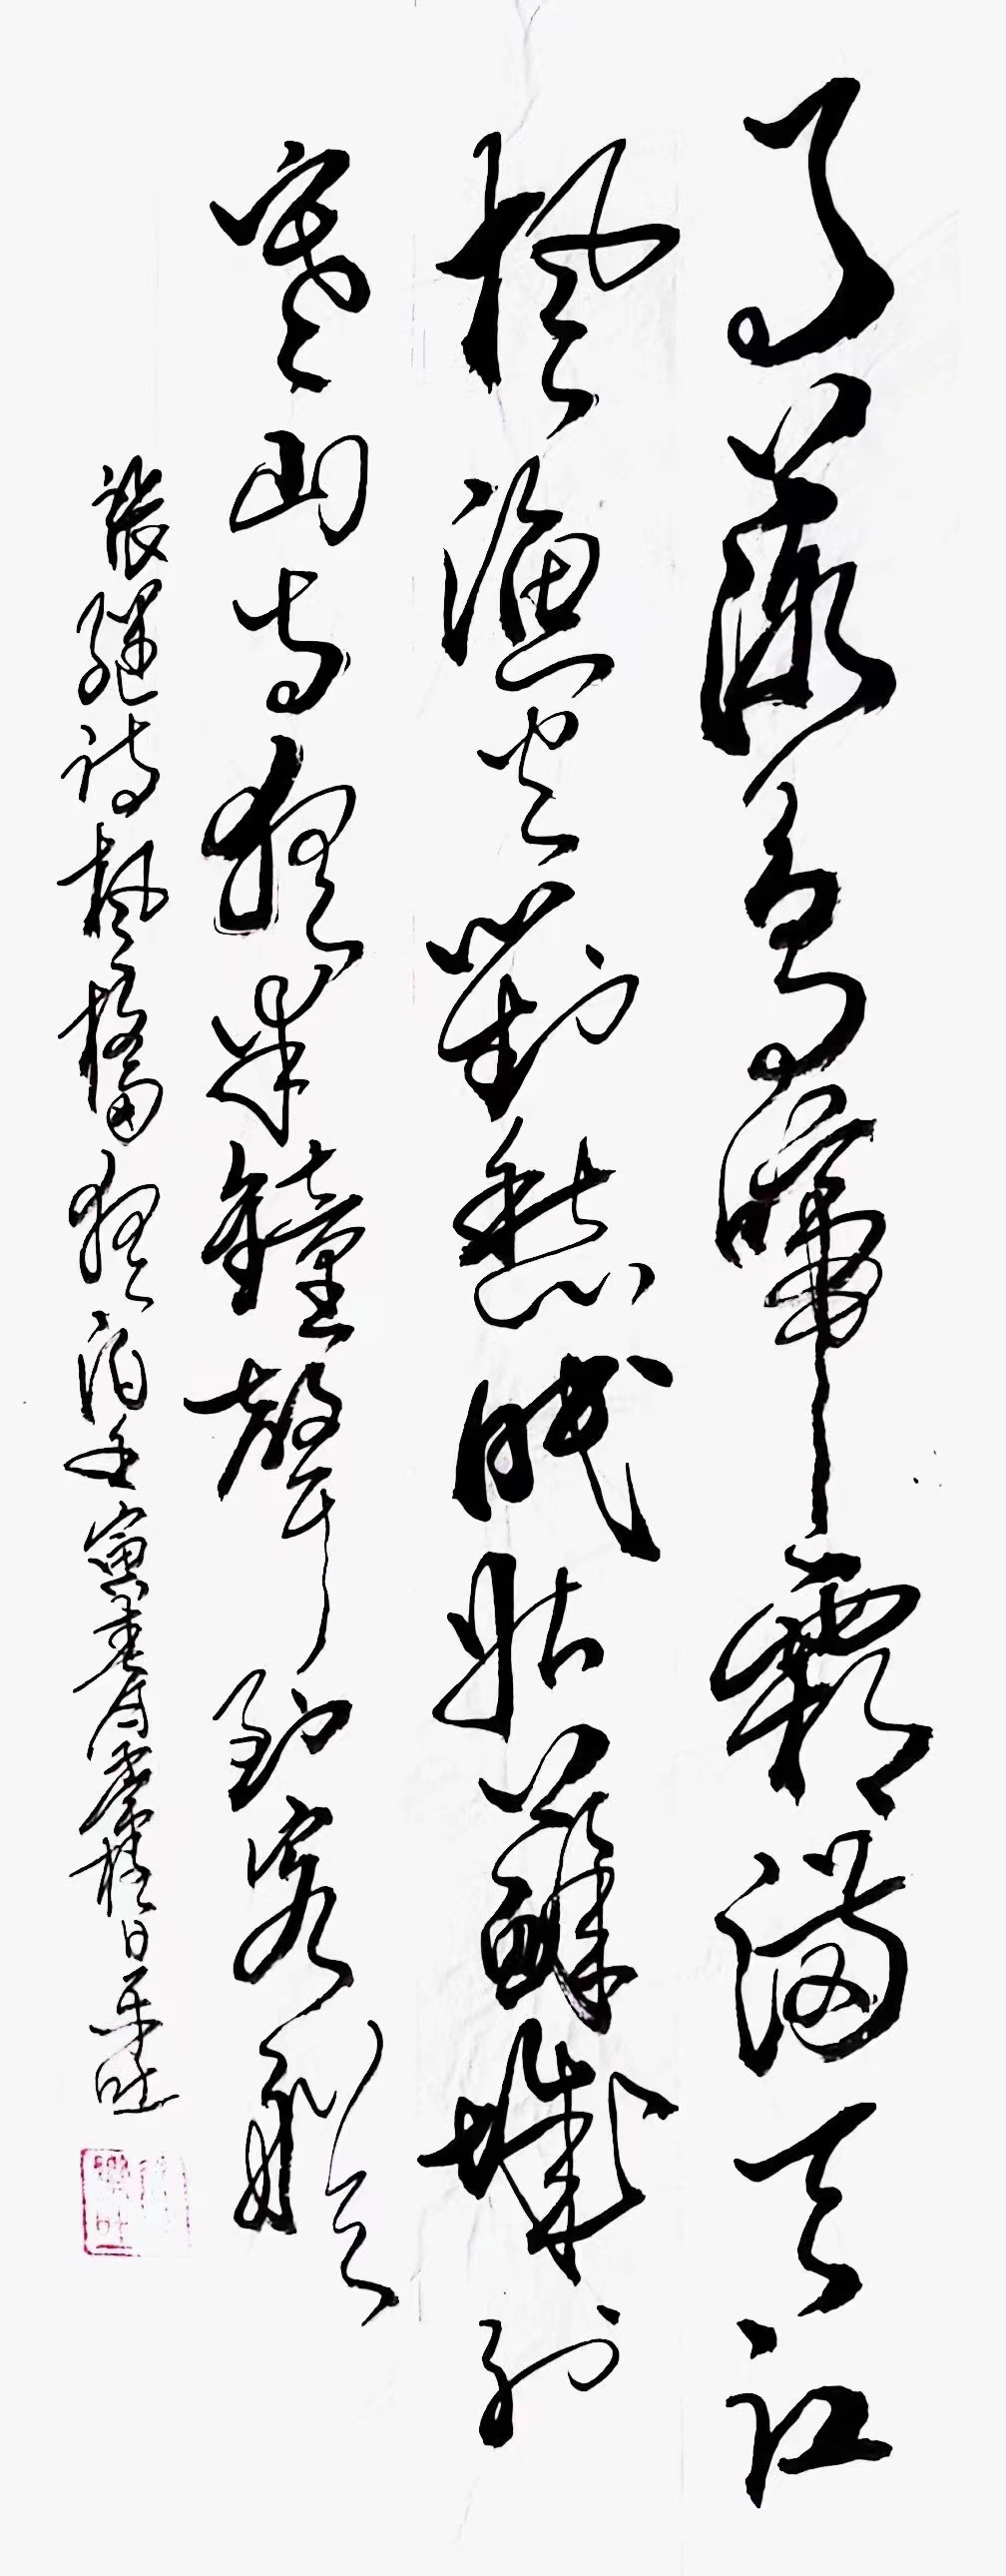 月落烏啼霜滿天江
楓漁火對愁眠姑蘇城外
寒山寺夜半鐘聲到客船
張繼詩楓橋夜泊壬寅春月